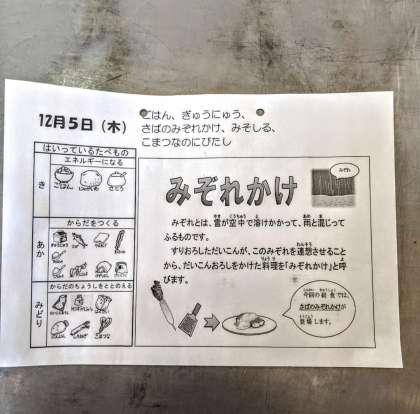 12月5日（木）
ごはん、ぎゅうにゅう、
さばのみぞれかけ、みそしる、
こまつなのにびたし
はいっているたべもの
エネルギーになる
き
ごはん
さとう
からだをつくる
あか
からだのちょうしをととのえる
みどり
こまつな
みぞれかけ
みぞれ
みぞれとは、雪が空中で溶けかかって、雨と混じって
ふるものです。
すりおろしただいこんが、このみぞれを連想させること
から、だいこんおろしをかけた料理を「みぞれかけ」と呼
びます。
今回の給食では、
さばのみぞれかけが
登場します。